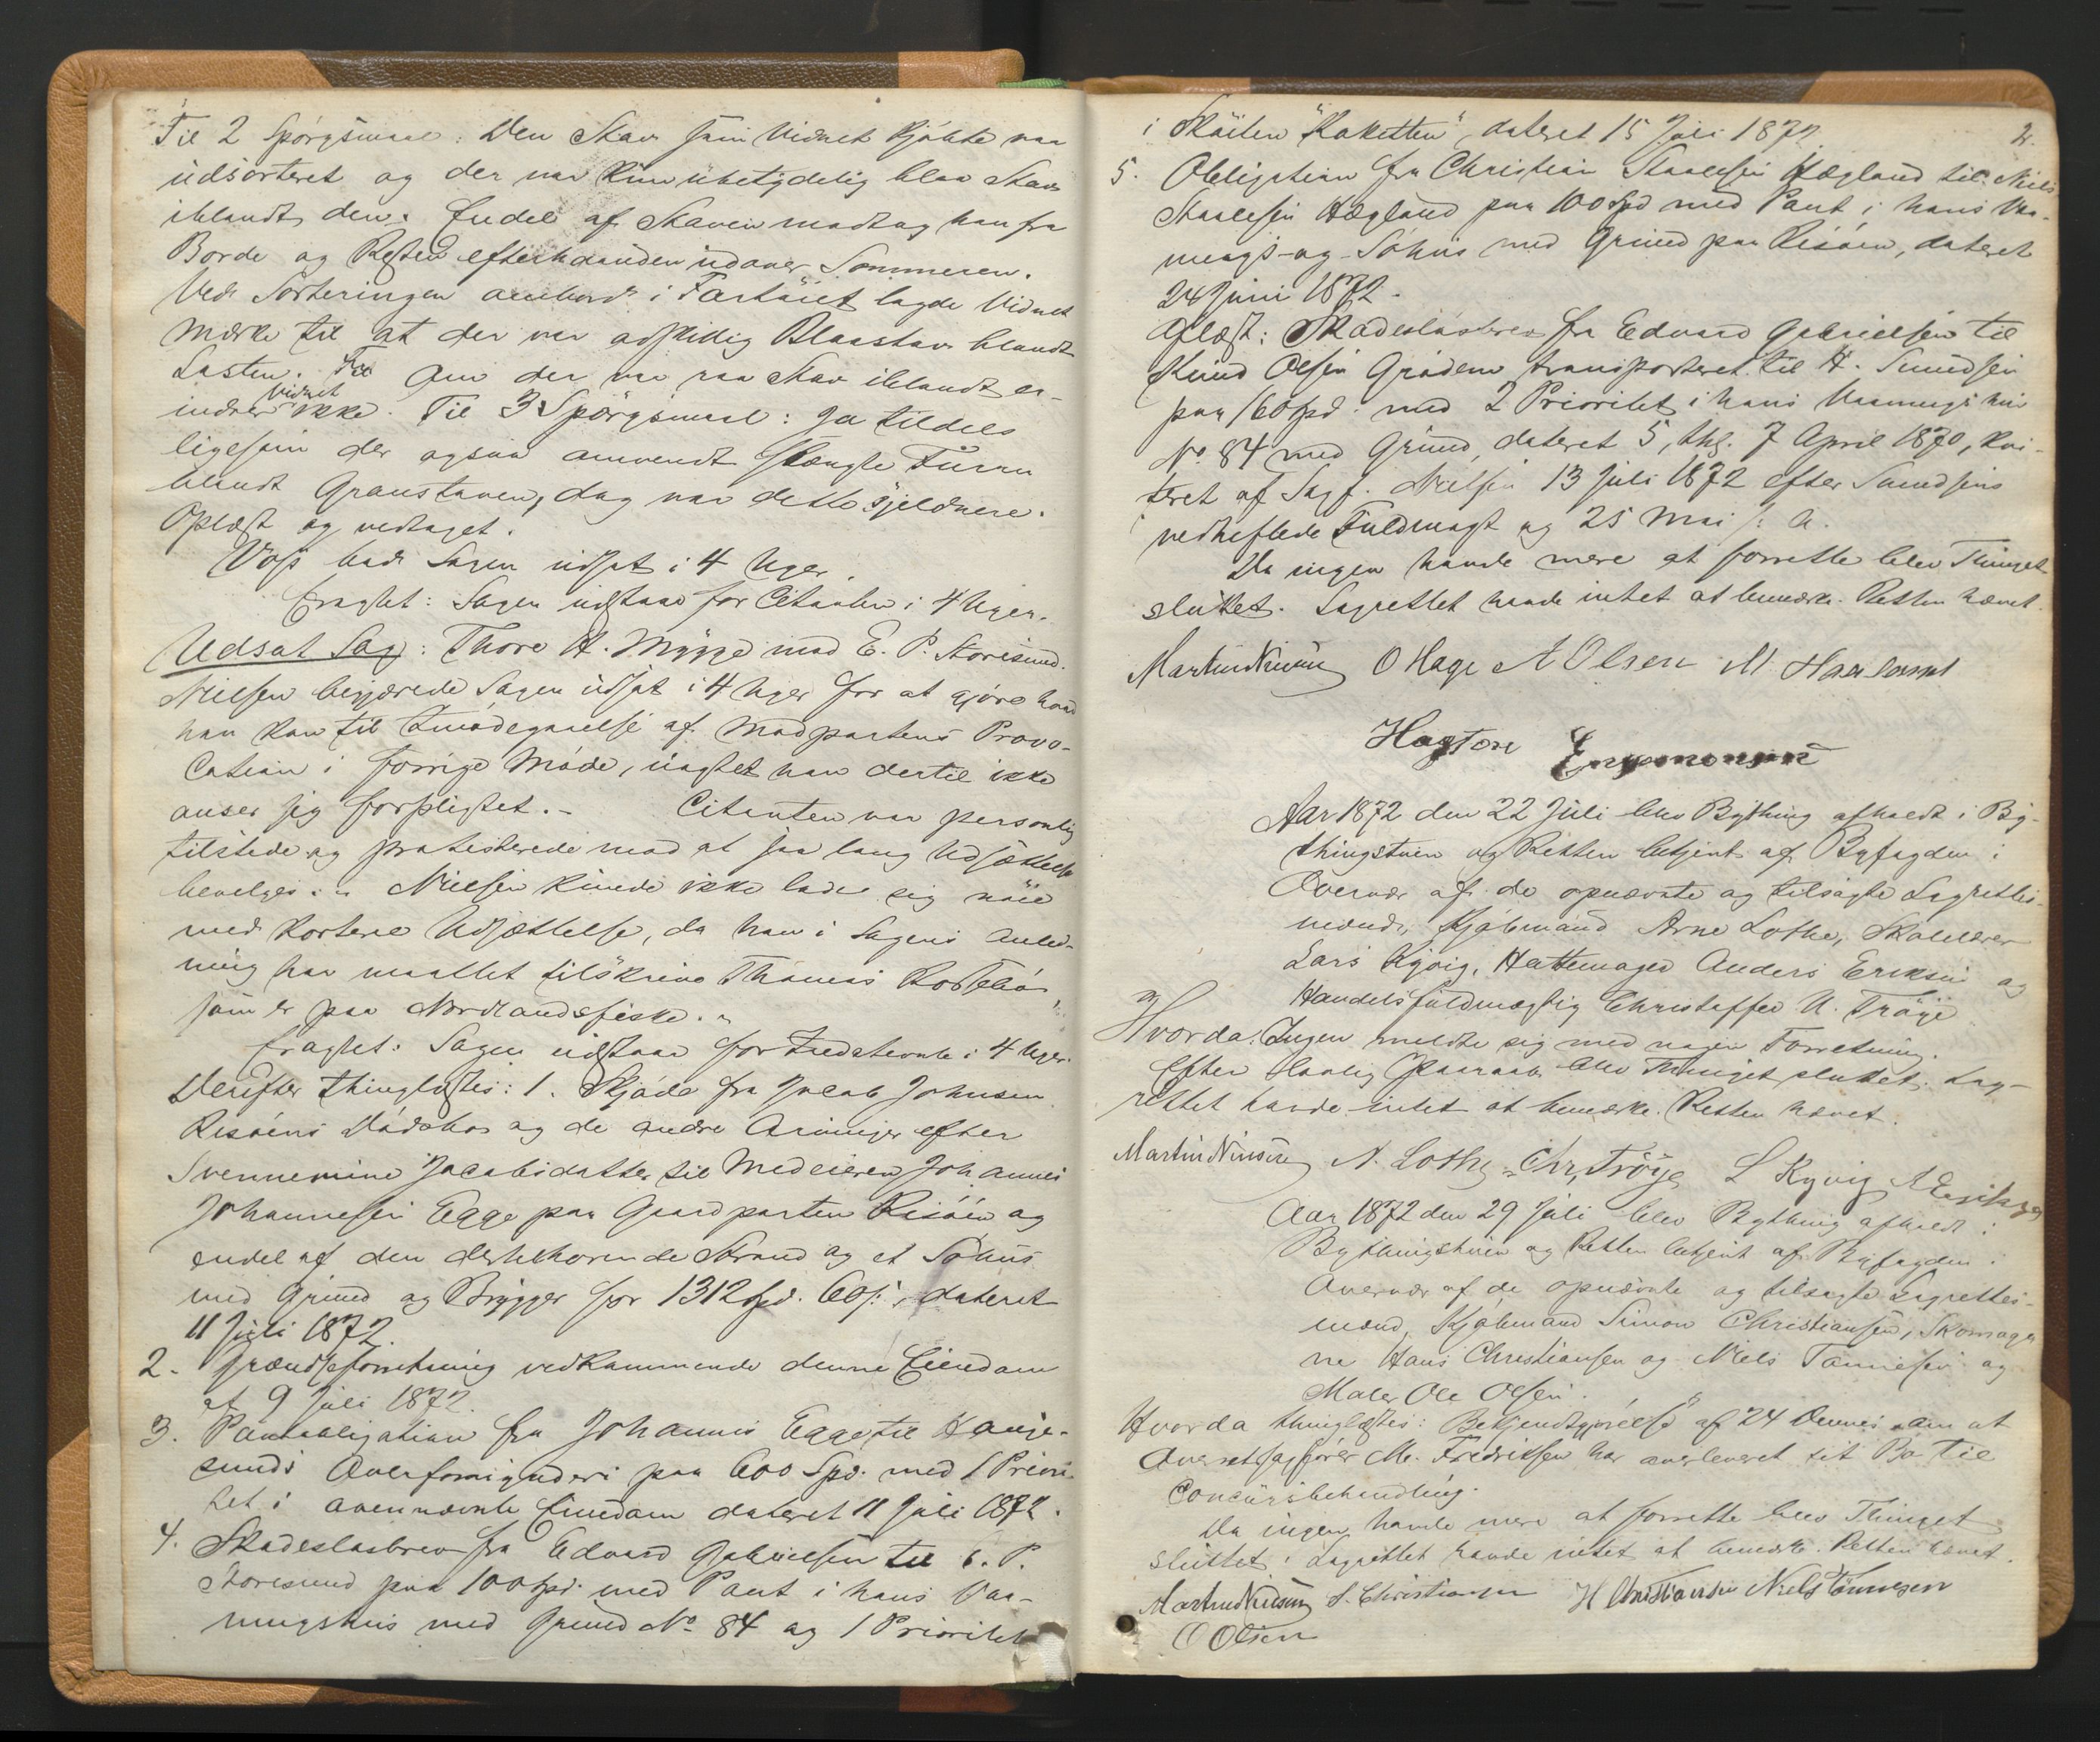 Til 2 Spörgsmaal: Den Stav som Vidnet kjöbte var
udsorteret og der var kun ubetydelig blaa Stav
iblandt den. Endel af Staven modtog han fra
Borde og Resten efterhaanden udover Sommeren.
Ved Sorteringen ombord i Fartöiet lagde Vidnet
Mærke til at der var adskillig Blaastav blandt
Lasten. Om der var raa Stav iblandt er-
indrer Vidnet ikke. Til 3 Spörgsmaal: Ja tildels
ligesom der ogsaa anvendt Furu
blandt Granstaven, dog var dette sjeldnere.
Oplæst og vedtaget.
Voss bad Sagen udsat i 4 Uger.
Eragtet: Sagen udstaar for Citanten i 4 Uger.
Udsat Sag: Thore H. Mygge mod E. P. Storesund.
Nielsen begjærede Sagen udsat i 4 Uger for at gjöre hvad
han kan til Imödegaaelse af Modpartens Provo-
cation i forrige Möde, uagtet han dertil ikke
anser sig forpligtet. - Citanten var personlig
tilstede og protesterede mod at saa lang Udsættelse
bevilges. Nielsen kunde ikke lade sig nöie
med kortere Udsættelse, da han i Sagens Anled-
ning har maattet tilskrive Thomas
som er paa Nordlandsfiske.
Eragtet: Sagen udstaar for Indstevnte i 4 Uger.
Derefter thinglæstes: 1. Skjöde fra Jacob Johnsen
Risöens Dödsbo og de andre Arvinger efter
Svennemine Jacobsdatter til Medeieren Johannes
Johannesen Egge paa Gaardparten Risöen og
endel af den dertilhörende Strand og et Söhus
med Grund og Brygger for 1312 Spd. 60 s, dateret
11 Juli 1872.
2. Grændseforretning vedkommende denne Eiendom
af 9 Juli 1872.
3. Pantobligation fra Johannes Egge til Hauge-
sunds Overformynderi paa 600 Spd. med 1 Priori-
tet i ovennævnte Eiendom dateret 11 Juli 1872.
4. Skadeslösbrev fra Edvard Gabrielsen til E. P.
Storesund paa 100 Spd. med Pant i hans Vaa-
ningshus med Grund No 84 og 1 Prioritet
2.
i Sköiten "Raketten", dateret 15 Juli 1872.
5. Obligation fra Christian Staalesen Hægland til Niels
Staalesen Hægland paa 100 Spd med Pant i hans Vaa-
nings- og Söhus med Grund paa Risöen, dateret
24 Juni 1872.
Aflæst: Skadeslösbrev fra Edvard Gabrielsen til
Knud Olsen Grödem transporteret til H. Smedsen
paa 160 Spd. med 2 Prioritet i hans Vaaningshus
No. 84 med Grund, dateret 5, thgl. 7 April 1870, kvi-
teret af Sagf. Nielsen 13 Juli 1872 efter
vedheftede Fuldmagt og 25 Mai s. A.
Da ingen havde mere at forrette blev Thinget
sluttet. Lagrettet havde intet at bemærke. Retten hævet.
Martin Nissen O Hage A Olsen M.
Hagtor
Aar 1872 den 22 Juli blev Bything afholdt i By-
thingstuen og Retten betjent af Byfogden i
Overvær af de opnævnte og tilsagte Lagrettes-
mænd, Kjöbmand Arne Lothe, Skolelærer
Lars Kyvig, Hattemager Anders Eriksen og
Handelsfuldmægtig Christoffer U. Tröye
Hvorda: Ingen meldte sig med nogen Forretning.
Efter lovlig Paaraab blev Thinget sluttet. Lag-
rettet havde intet at bemærke. Retten hævet.
Martin Nissen A. Lothe Chr. Tröye L Kyvig A Eriksen
Aar 1872 den 29 Juli blev Bything afholdt i
Bythingstuen og Retten betjent af Byfogden i
Overvær af de opnævnte og tilsagte Lagrettes-
mænd, Kjöbmand Simon Christiansen, Skomager-
ne Hans Christiansen og Niels Tönnesen og
Maler Ole Olsen.
Hvorda thinglæstes: Bekjendtgjörelse af 24 Dennes om at
Overretssagförer M. Fredriksen har overleveret sit Bo til
Concursbehandling.
Da ingen havde mere at forrette blev Thinget
sluttet. Lagrettet havde intet at bemærke. Retten hævet.
Martin Nissen S. Christiansen H Christiansen Niels Tönnesen
O Olsen